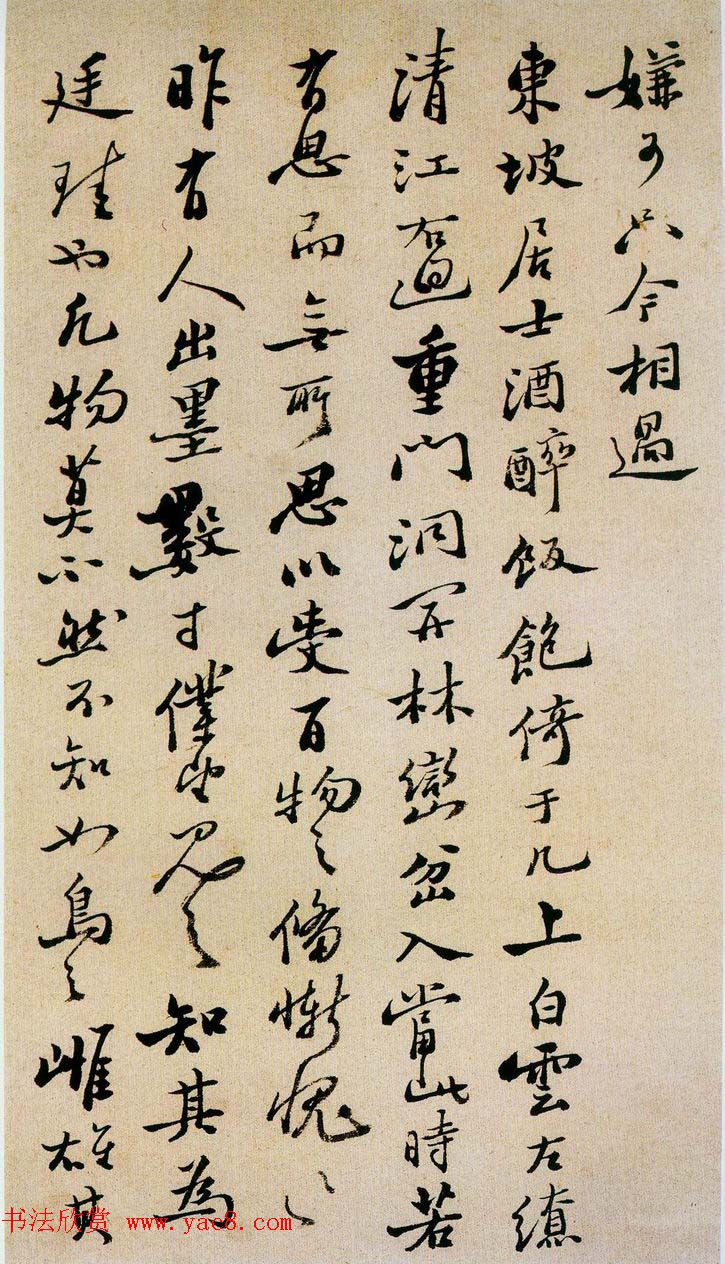 嫌可只今相過
東坡居士酒醉飯飽倚于几上白雲左繚
清江右洄重門洞開林巒岔入當此時若
有思而無所思以受百物之備慚愧慚愧
昨有人出墨數寸僕望見之知其為
廷珪也凡物莫不然不知如烏之雌雄其
书法欣赏 www.yac8.com